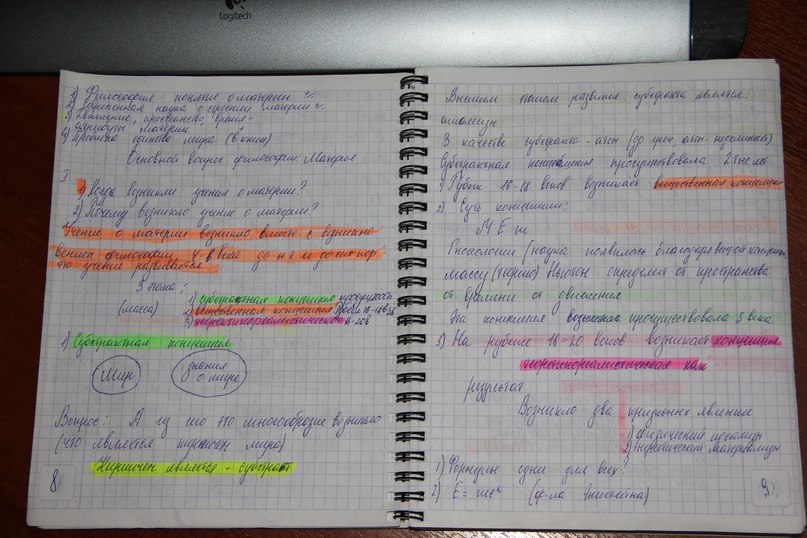 Logitech
1) Философия понятие о материи
2) Современная наука о строении материи
3) Движение, пространство, время -
атрибуты материи
4) Проблема единства мира (в книге)
Основной вопрос философии: Материя
I
1) Когда возникли учения о материи?
2) Почему возникло учение о материи?
Учение о материи возникло вместе с возникно-
вением философии в века до н э и до сих пор
это учение развивается
3 этапа:
(масса)
1) субстратная концепция
2) вещественная концепция
3)
1) Субстратная концепция
Мир
знания о мире
Вопрос: А из что это многообразие возникло
(что является кирпичем мира)
Кирпичем является - субстрат
8
Высшим этапом развития субстрата является:
атомизм
В качестве субстрата - атом (др греч, атом-неделимый)
Субстратная концепция просуществовала 2 тыс лет
Рубеж 16-18 веков возникает вещественная концепция
2) Суть концепции:
М Е m
Гносеологии (наука появилась благодаря концепции
массу Ньютон определит от пространства
от времени от движения
Эта концепция просуществовала 3 века
3) На рубеже 18-20 веков возникает концепция
как
результат
Возникло два кризисных явления
1) физический идеализм
2) материализм
1) Формулы одни для всех
2) E = mc² (ф-ла Энштейна)
9